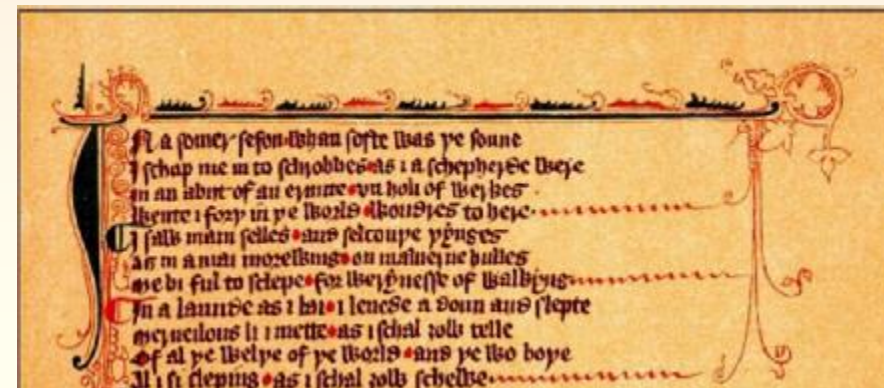 IN a somer seson whan softe was þe sonne
I schop me in to schrobbes as i a schepherde were
in an abit of an ermite vn holi of werkes
Wente i forþ in þe world wondres to here
I saw mani selles and selcouþe þynges
as in a mai morewning on maluerne hulles
me bi ful to sclepe for werynesse of walkyng
In a launde as i lai i lenede a doun and slepte
merueilous li i mette as i schal ȝow telle
Of al þe welþe of þe world and þe wo boþe
Al i si sleping as i schal ȝow schewe